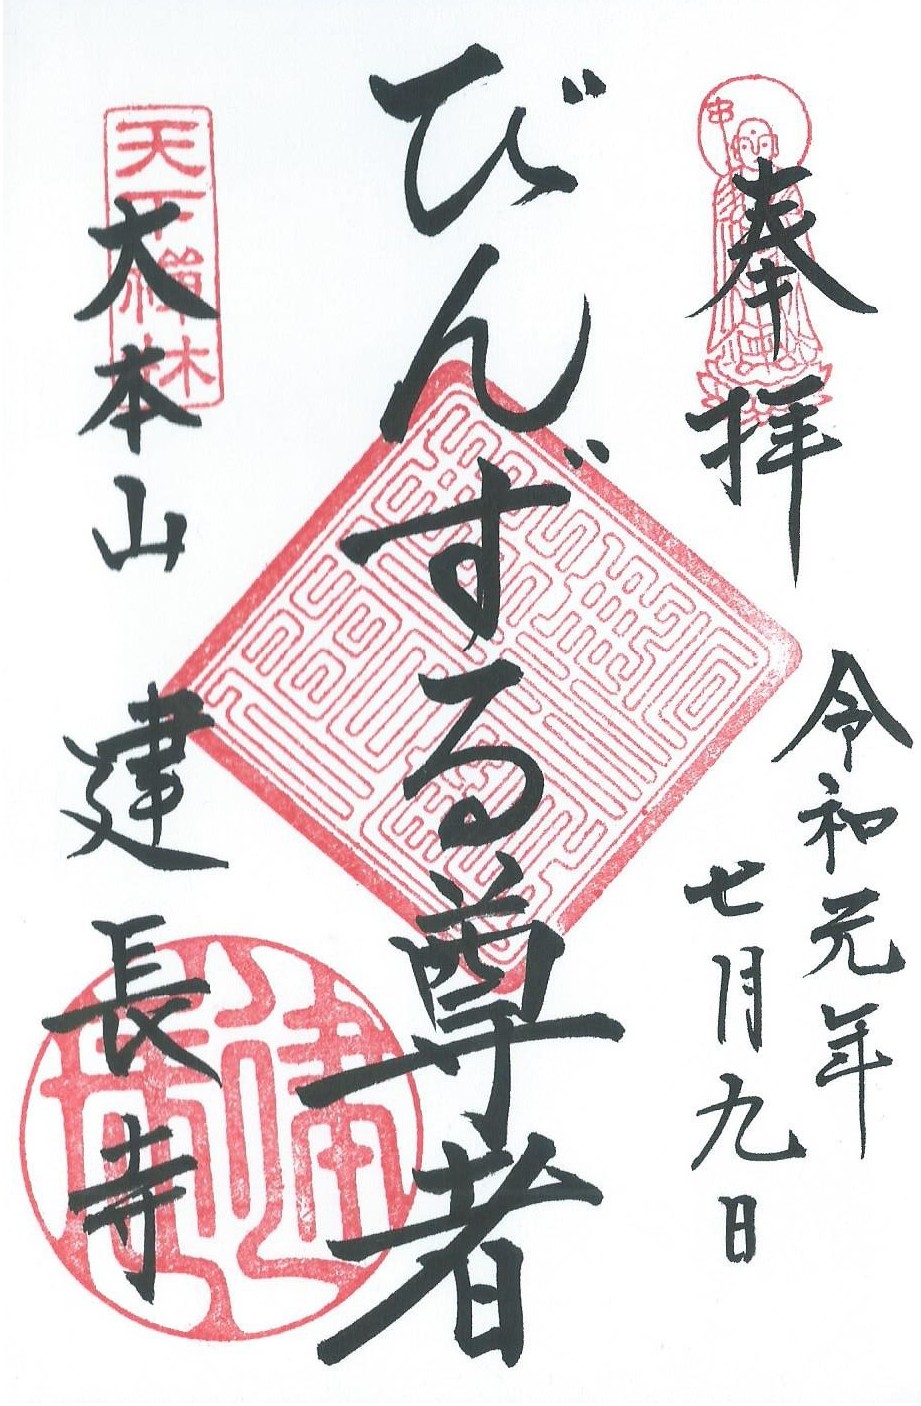 奉拝
令和元年
七月九日
びんずる尊者
天下禅林
大本山 建長寺